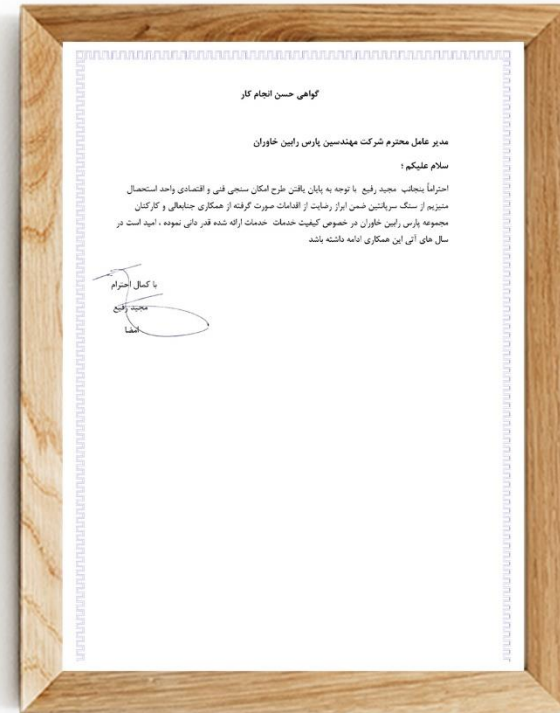 گواهی حسن انجام کار
مدیر عامل محترم شرکت مهندسین پارس رایین خاوران
سلام علیکم ؛
احتراماً ینجانب مجید رفیع با توجه به پایان یافتن طرح امکان سنجی فنی و اقتصادی واحد استحصال
منیزیم از سنگ سرپانتین ضمن ابراز رضایت از اقدامات صورت گرفته از همکاری جنابعالی و کارکنان
مجموعه پارس رایین خاوران در خصوص کیفیت خدمات خدمات ارائه شده قدر دانی نموده ، امید است در
سال های آتی این همکاری ادامه داشته باشد
با کمال احترام
مجید رفیع
امضا